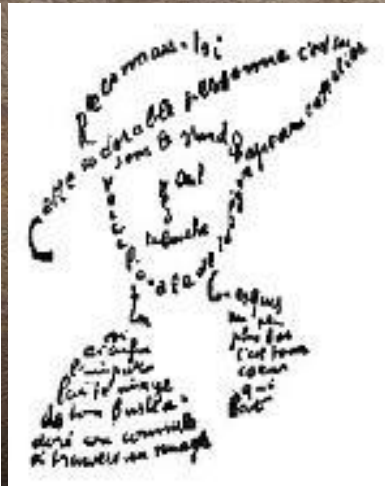 Reconnais-toi
Cette adorable personne c'est toi
sous le grand chapeau canotier
œil
la bouche
Voici l'ovale de ta figure
Ton
cou exquis
ci
enfin
l'impar
faite image
de ton buste a
doré vu comme
à travers un nuage
un peu
plus bas
c'est ton
cœur
qui
bat